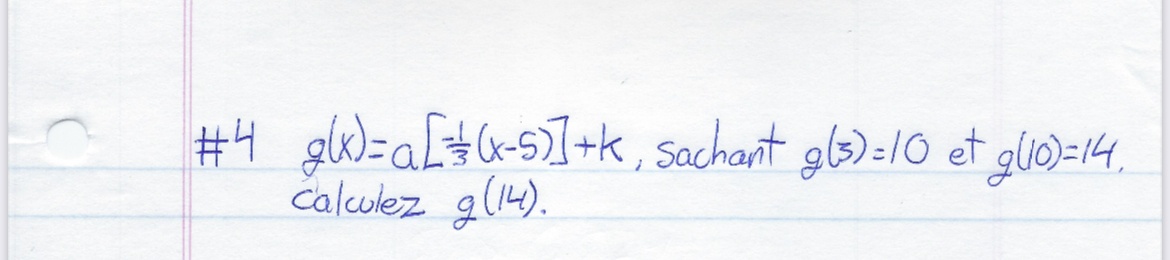 #4 g(x)=a[-1/3(x-5)]+k, sachant g(3)=10 et g(10)=14.
Calculez g(14).